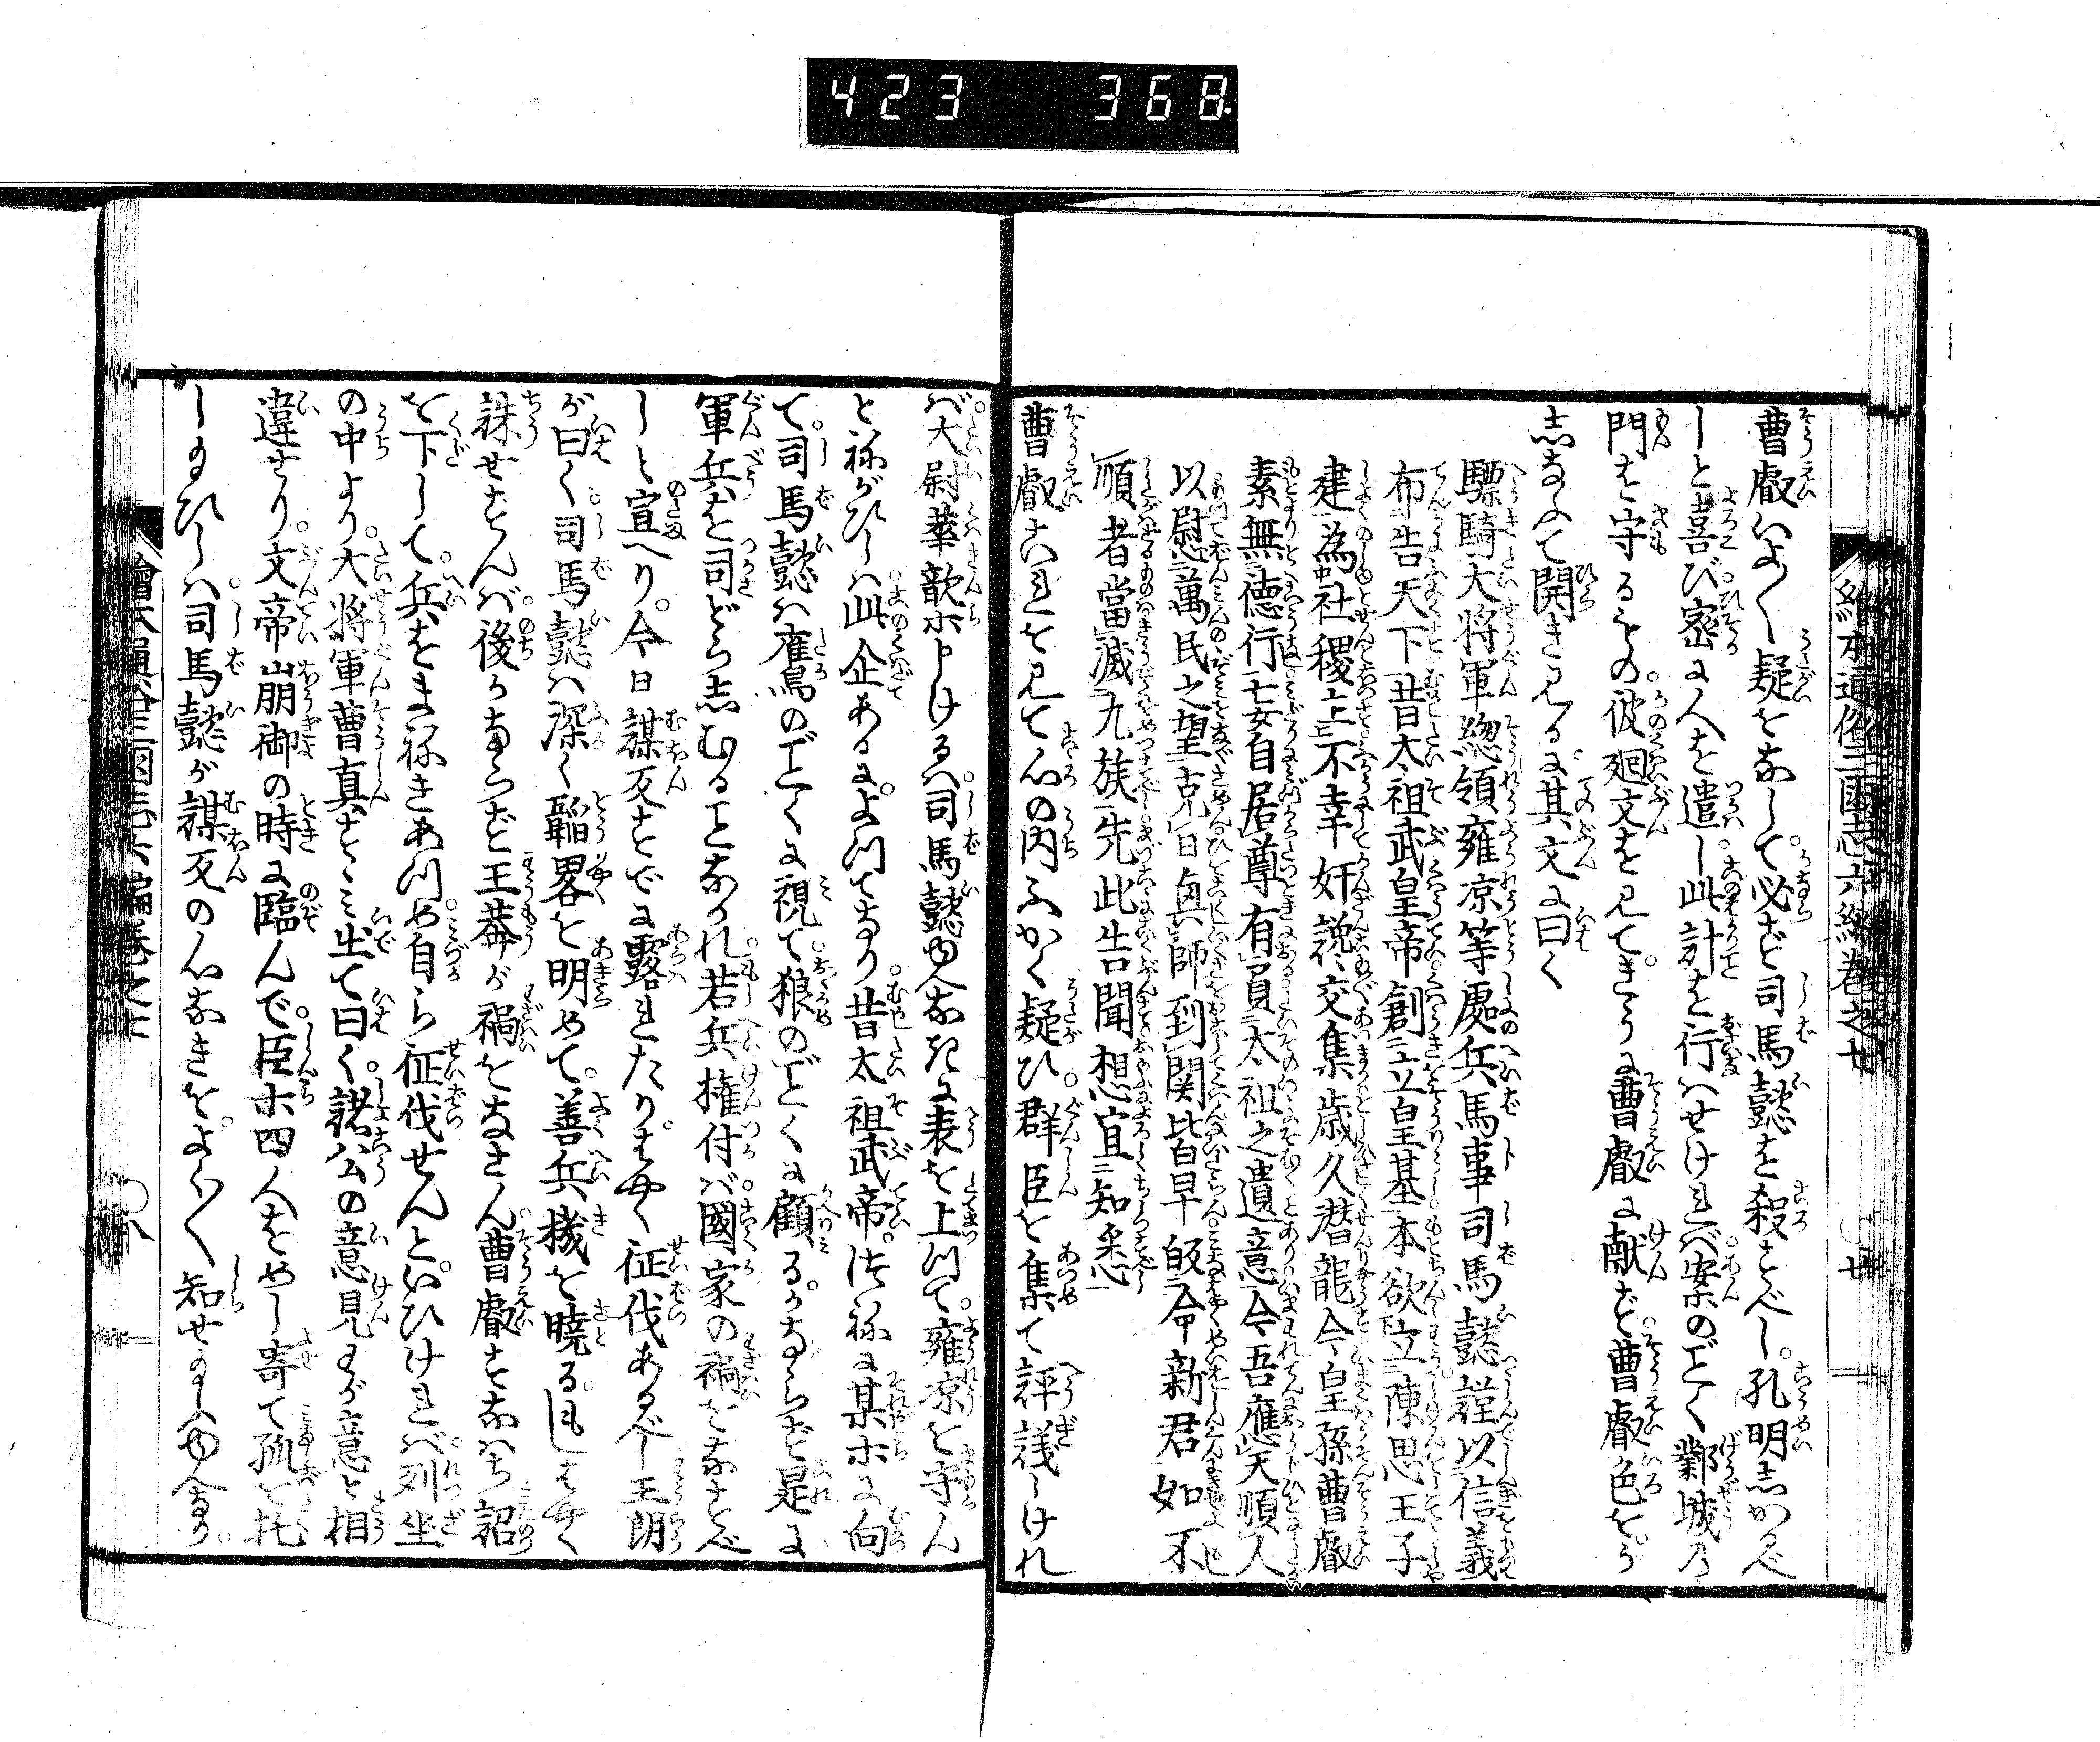 423 368
繪本通俗三國志六編卷之七
曹叡いよ〳〵疑をなして必ず司馬懿を殺すべし孔明志かるべ
しと喜び密に人を遣し此計を行はせければ案のごとく鄴城の
門を守るもの彼廻文を見てきうに曹叡に献ず曹叡色をう
志なふて開き見るに其文に曰く
驃騎大將軍總領雍凉等處兵馬事司馬懿謹以信義
布告天下昔太祖武皇帝創立皇基本欲立陳思王子
建為社稷主不幸奸讒交集歳久潜龍今皇孫曹叡
素無德行妄自居尊有負太祖之遺意今吾應天順人
以慰萬民之望克日興師到関皆早皈命新君如不
順者當滅九族先此告聞想宜知悉
曹叡これを見て心の内ふかく疑ひ群臣を集て評議しけれ
ば大尉華歆ホ申けるハ司馬懿内〻なきに表を上つて雍凉を守ん
とねがひしハ此企あるによつてなり昔太祖武帝つねに某ホに向
て司馬懿ハ鷹のごとくに視て狼のごとくに顧るかならず是に
軍兵を司どら志むることなかれ若兵権付バ國家の禍をなすべ
しと宣へり今日謀反すでに露れたりはやく征伐あるべし王朗
が曰く司馬懿ハ深く韜畧を明めて善兵機を曉るもしはやく
誅せずんバ後かならず王莽が禍をなさん曹叡すなハち詔
を下して兵をまねきあつめ自ら征伐せんといひければ列坐
の中より大将軍曹真すゝみ出て曰く諸公の意見わが意と相
違せり文帝崩御の時に臨んで臣ホ四人をめし寄て孤を托
し玉ひしハ司馬懿が謀反の心なきをよく〳〵知せ玉ふ由なり
繪本通俗三國志六編卷之七